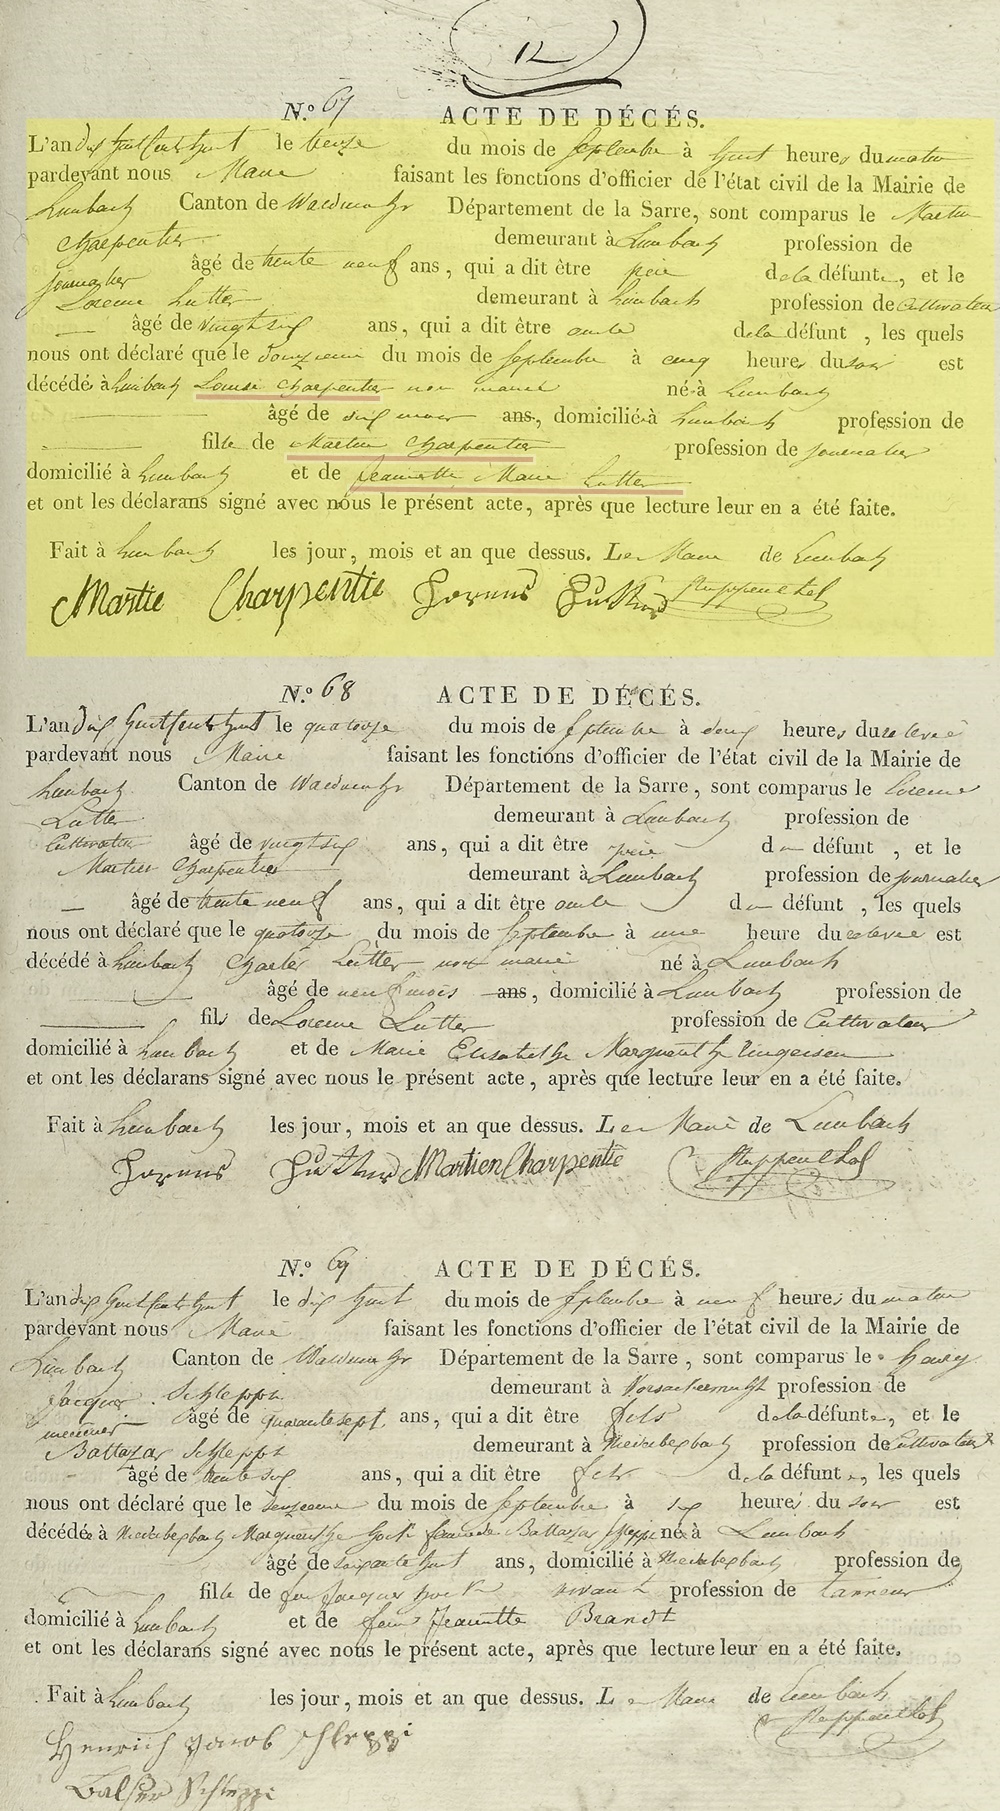 12
N.º 67 ACTE DE DÉCÉS.
L'an dix huit cent huit le treize du mois de septembre à huit heures du matin
pardevant nous Maire faisant les fonctions d'officier de l'état civil de la Mairie de
Limbach Canton de Waldmohr Département de la Sarre, sont comparus le Martin
Charpentier demeurant à Limbach profession de
journalier âgé de trente neuf ans, qui a dit être père de la défunte, et le
Lorenz Lutter demeurant à Limbach profession de Cultivateur
âgé de vingt six ans, qui a dit être oncle de la défunt , les quels
nous ont déclaré que le douzieme du mois de septembre à cinq heures du soir est
décédé à Limbach Louise Charpentier non marié né à Limbach
âgé de six mois ans, domicilié à Limbach profession de
fille de Martin Charpentier profession de journalier
domicilié à Limbach et de Jeannette Marie Lutter
et ont les déclarans signé avec nous le présent acte, après que lecture leur en a été faite.
Fait à Limbach les jour, mois et an que dessus. Le Maire de Limbach
Martie Charpentie Lorens
N.º 68 ACTE DE DÉCÉS.
L'an dix huit cent huit le quatorze du mois de septembre à deux heures du relevée
pardevant nous Maire faisant les fonctions d'officier de l'état civil de la Mairie de
Limbach Canton de Waldmohr Département de la Sarre, sont comparus le Lorenz
Lutter demeurant à Limbach profession de
Cultivateur âgé de vingt six ans, qui a dit être père d défunt , et le
Martin Charpentier demeurant à Limbach profession de journalier
âgé de trente neuf ans, qui a dit être oncle d défunt , les quels
nous ont déclaré que le quatorze du mois de septembre à une heure du relevée est
décédé à Limbach Charles Lutter non marié né à Limbach
âgé de neuf mois ans, domicilié à Limbach profession de
fils de Lorenz Lutter profession de Cultivateur
domicilié à Limbach et de Marie Elisabethe Marguerithe
et ont les déclarans signé avec nous le présent acte, après que lecture leur en a été faite.
Fait à Limbach les jour, mois et an que dessus. Le Maire de Limbach
Lorens Martien Charpentie
N.º 69 ACTE DE DÉCÉS.
L'an dix huit cent huit le dix huit du mois de septembre à neuf heures du matin
pardevant nous Maire faisant les fonctions d'officier de l'état civil de la Mairie de
Limbach Canton de Waldmohr Département de la Sarre, sont comparus le Henry
Jacques Schleppi demeurant à profession de
meunier âgé de quarante sept ans, qui a dit être fils de la défunte, et le
Baltazar Schleppi demeurant à Niederbexbach profession de Cultivateur
âgé de trente six ans, qui a dit être fils de la défunte, les quels
nous ont déclaré que le seizieme du mois de septembre à six heures du soir est
décédée à Niederbexbach Marguerithe femme de Baltazar Schleppi né à Limbach
âgé de soixante huit ans, domicilié à Niederbexbach profession de
fille de feu Jacques vivant profession de tanneur
domicilié à Limbach et de feue Jeannette Brandt
et ont les déclarans signé avec nous le présent acte, après que lecture leur en a été faite.
Fait à Limbach les jour, mois et an que dessus. Le Maire de Limbach
Henrich Jacob Schleppi
Balser Schleppi